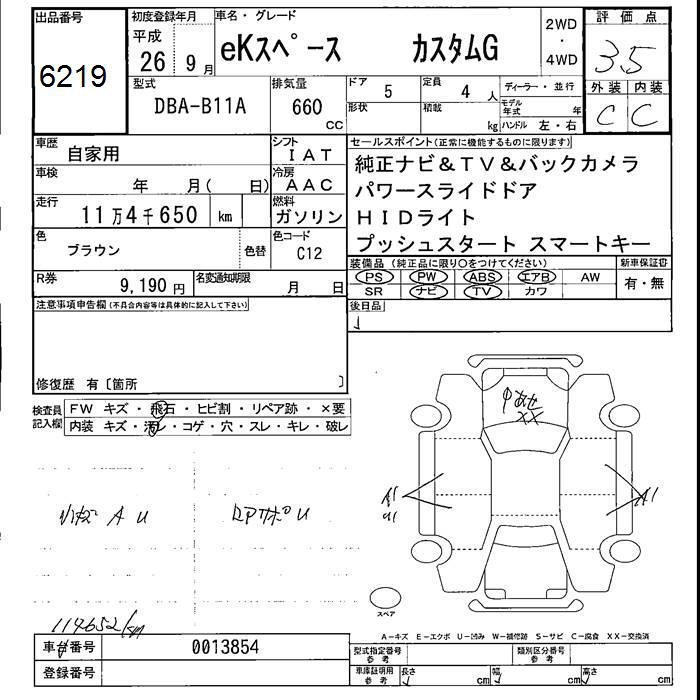 出品番号
6219
初度登録年月
平成
26年 9月
車名・グレード
eKスペース カスタムG
2WD
・
4WD
評価点
3.5
外装 内装
C C
型式
DBA-B11A
排気量
660
CC
ドア
5
定員
4 人
形状
積載
kg
ディーラー・並行
モデル年式 年
ハンドル 左・右
車歴
自家用
シフト
IAT
車検
年 月( 日)
冷房
AAC
走行
11万4千650 km
燃料
ガソリン
色
ブラウン
色替
色コード
C12
R券
9,190 円
名変通知期限
月 日
セールスポイント(正常に機能するものに限ります)
純正ナビ&TV&バックカメラ
パワースライドドア
HIDライト
プッシュスタート スマートキー
装備品 (純正品に限り○をつけてください)
PS PW ABS エアB AW
SR ナビ TV カワ
新車保証書
有・無
後日品
注意事項申告欄(不具合内容等は具体的に記入して下さい)
修復歴 有〔箇所 〕
検査員
記入欄
FW キズ・飛石・ヒビ割・リペア跡・×要
内装 キズ・汚レ・コゲ・穴・スレ・キレ・破レ
A U
U
XX
A1
A1
スペア
114652km
A-キズ E-エクボ U-凹み W-補修跡 S-サビ C-腐食 XX-交換済
車番号
0013854
登録番号
型式指定番号
参考
類別区分番号
参考
車庫証明用
参考
長さ cm
幅 cm
高さ cm